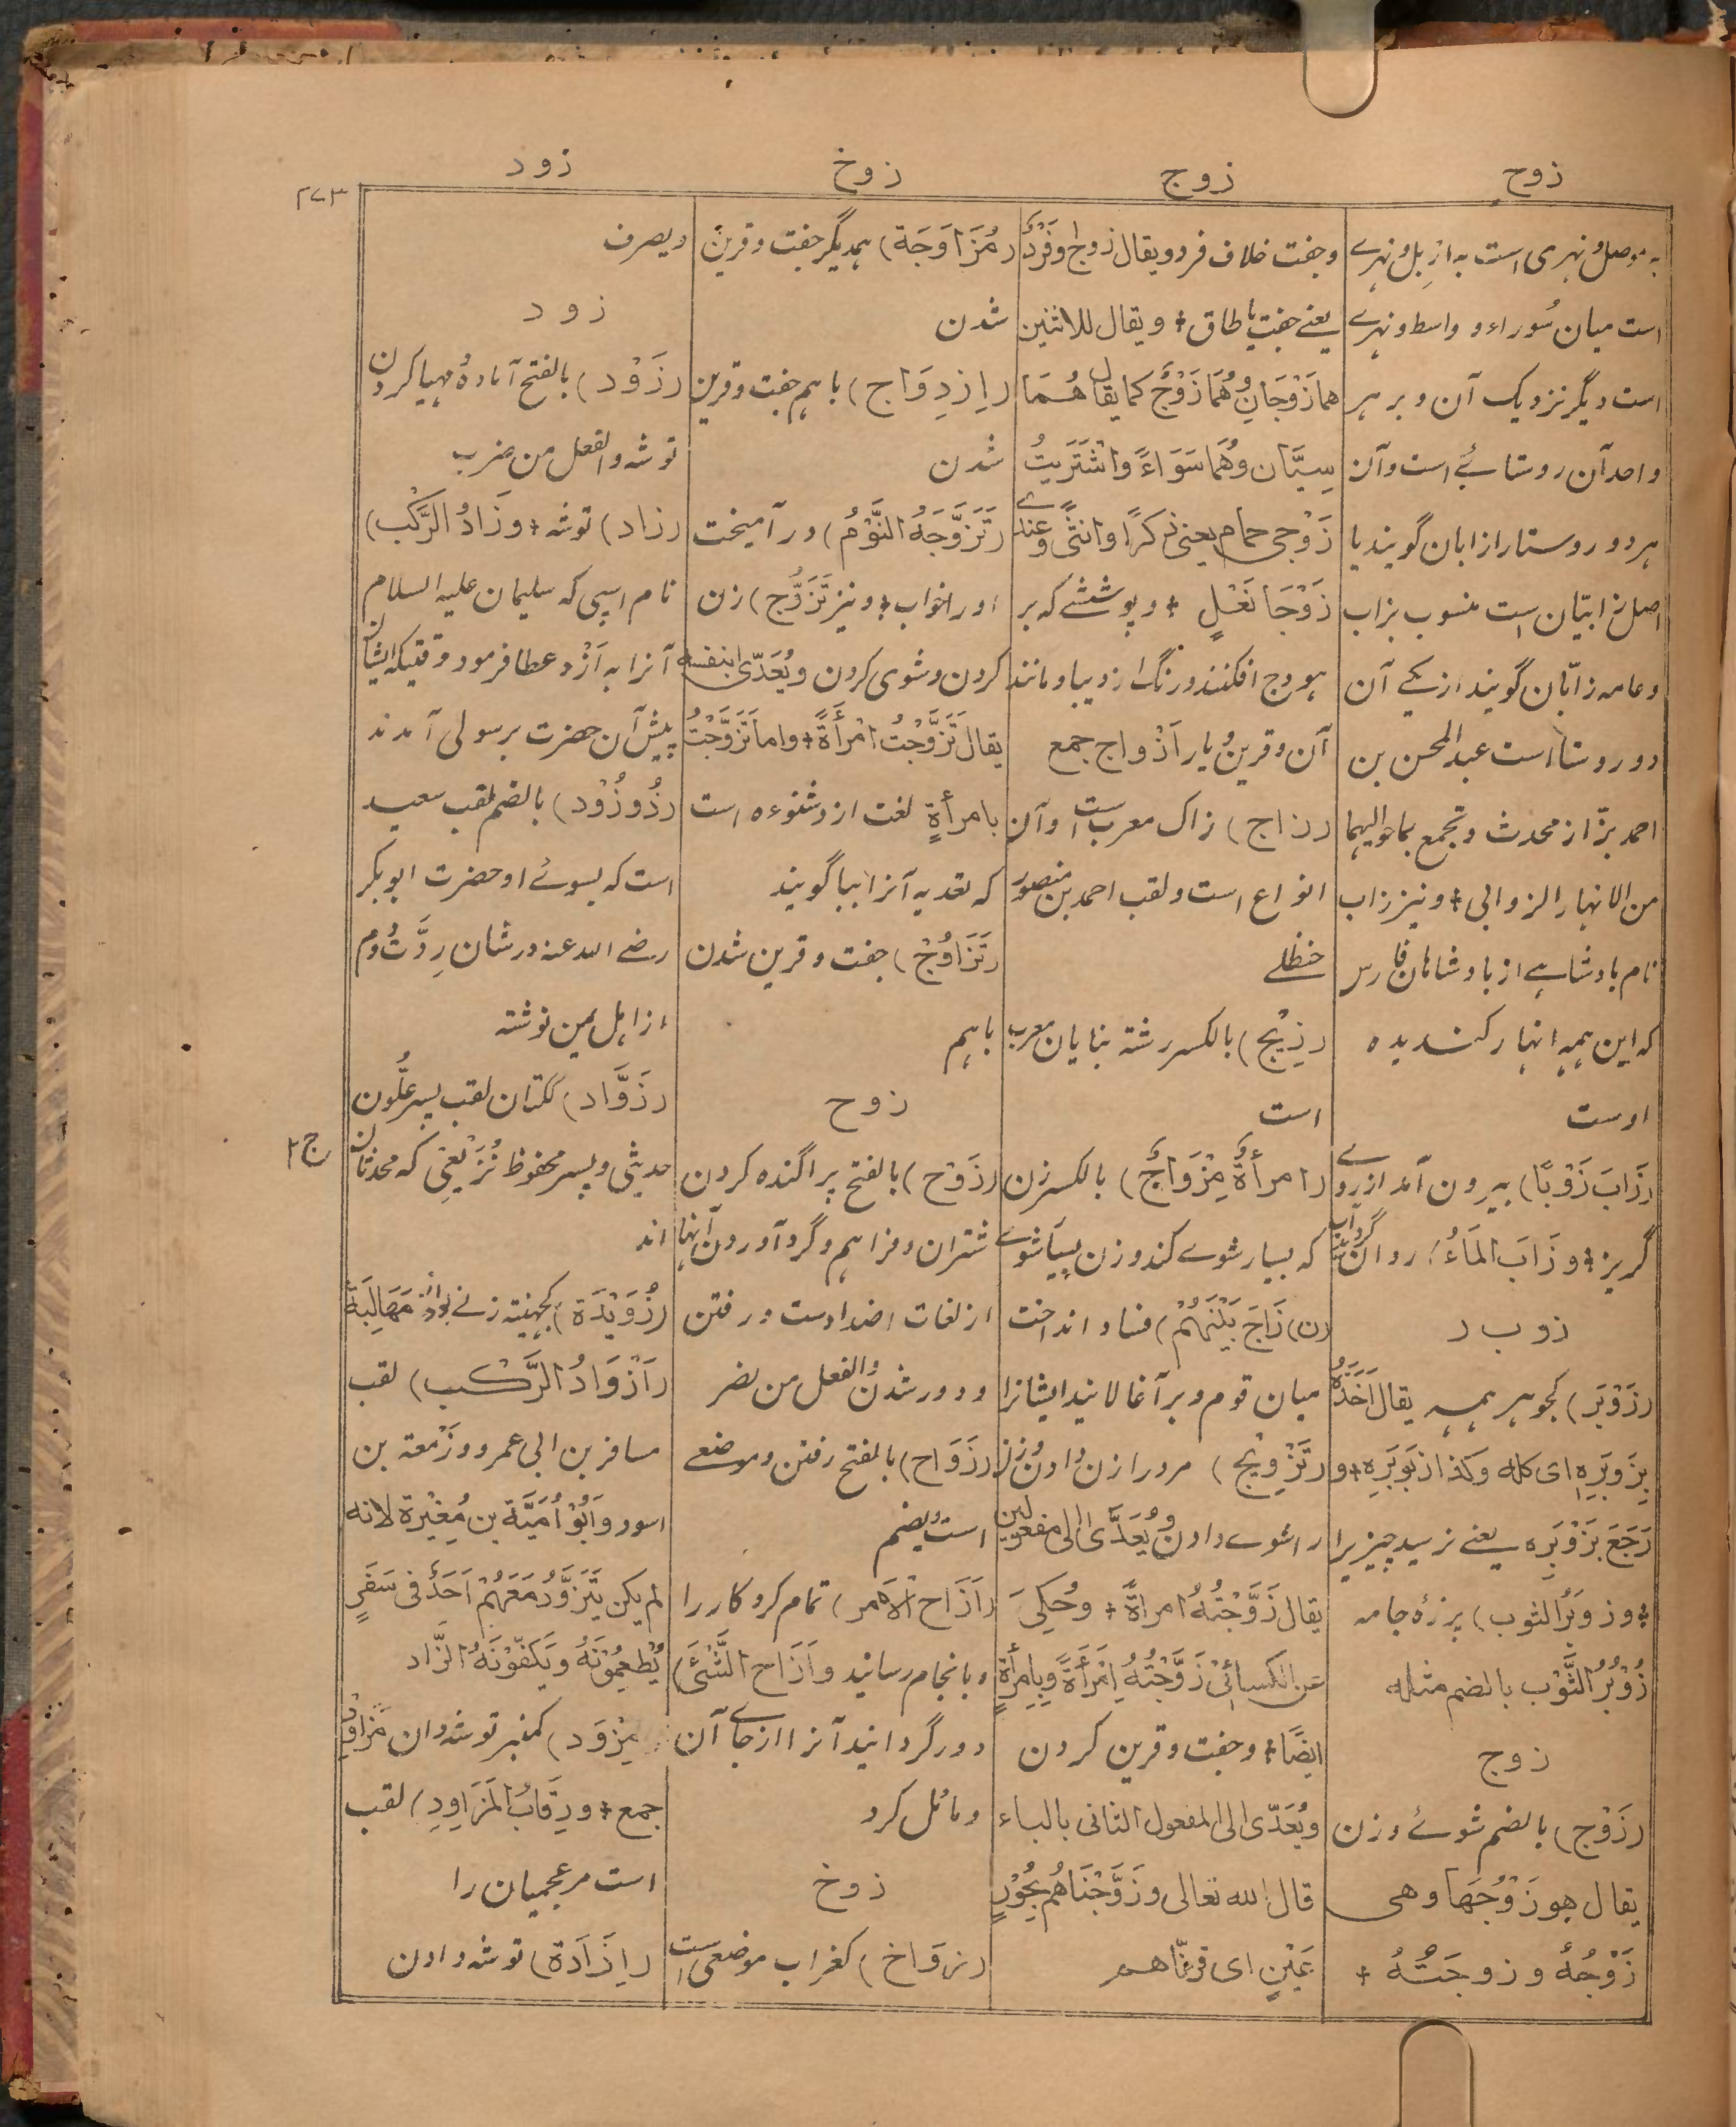 زوج
زوج
زوخ
زود
۲۷۳
به موصل و نهری است به اربل و نهرے
است میان سُوراء و واسط و نهرے
است دیگر نزدیک آن و بر هر
واحد آن روستائے است و آن
هر دو روستا را زابان گویند یا
اصل زابیّان است منسوب بزاب
وعامه زابّان گویند از یکے آن
دو روستا است عبد المحسن بن
احمد بزّاز محدث وتجمع بما حوالیهما
من الانهار الزوابی + و نیز زاب
نام بادشاهے از بادشاهان فارس
که این همه انهار کندیده
اوست
(زَابَ زَوْبًا) بیرون آمد از روے
گریز + و زَابَ المَاءُ) روان گردید آب
زوبر
(زَوْبَر) کجوهر همه یقال اَخَذَهُ
بِزَوبَرِهِ ای کله وکذا بزَوبَرِهِ + و
رَجَعَ بَزَوْبَرِه یعنے نرسید چیزیرا
+ و زوبَرُ الثوب) پرزهٔ جامه
زُوْبُرُ الثَّوْب بالضم مثله
زوج
(زَوْج) بالضم شوئے و زن
یقال هو زَوْجُهَا وهی
زَوْجُهُ و زوجَتُهُ +
وجفت خلاف فرد ویقال زوجٌ وفَرْدٌ
یعنے جفت یا طاق + ویقال للاثنین
هما زَوْجَانِ وهُمَا زَوْجٌ کما یقال هُمَا
سِیَّان وهُمَا سَوَاءٌ واشْتَرَیتُ
زَوْجی حمام یعنی ذکرًا وانثی وعندے
زَوْجَا نَعْلٍ + و پوششے که بر
هودج افکنند و رنگ از دیبا و مانند
آن و قرین و یار اَزْواج جمع
(زاج) زاک معرب است و آن
انواع است ولقب احمد بن منصور
حنظلے
(زِیْج) بالکسر رشته بنایان معرب
است
(امرأةٌ مِزْوَاجٌ) بالکسر زن
که بسیار شوے کند و زن بسیار شوے
(ن) زَاجَ بَیْنَهُمْ) فساد انداخت
میان قوم و بر آغالانید ایشانرا
(تَزْوِیْج) مرد را زن دادن و زن
را شوے دادن و یُعَدَّی الی مفعولین
یقال زَوَّجْتُهُ امراةً + وحُکِیَ
عن الکسائیْ زَوَّجْتُهُ اِمْرَأَةً وبِامرأةٍ
ایضًا + وجفت و قرین کردن
ویُعَدّی الی المفعول الثانی بالباء
قال الله تعالی وزَوَّجْنَاهُم بِحُوْرٍ
عَیْنٍ ای قرنّاهم
(مُزَاوَجَة) همدیگر جفت و قرین
شدن
(اِزدِوَاج) باهم جفت و قرین
شدن
(تَزَوَّجَهُ النَّوْمُ) در آمیخت
او را خواب + و نیز تَزَوُّج) زن
کردن و شوی کردن ویُعَدّی بنفسه
یقال تَزَوَّجْتُ امْرأَةً + واما تَزَوَّجْتُ
بامرأةٍ لغت ازدشنوءه است
که تعدیه آنرا ببا گویند
(تَزَاوُجْ) جفت و قرین شدن
باهم
زوح
(زَوْح) بالفتح پراگنده کردن
شتران و فراهم و گرد آوردن آنها
از لغات اضداد است و رفتن
و دور شدن والفعل من نصر
(زَوَاح) بالفتح رفتن و موضعے
است و یضم
(اَزَاح الاَمر) تمام کرد کار را
و بانجام رسانید و اَزَاح الشَّئَ)
دور گردانید آنرا از جاے آن
و مائل کرد
زوخ
(زوَاخ) کغراب موضعی است
ویصرف
زود
(زَوْد) بالفتح آماده و مهیا کردن
توشه والفعل من ضرب
(زاد) توشه + و زَادُ الرَّکْب)
نام اسپی که سلیمان علیه السلام
آنرا به اَزْد عطا فرمود وقتیکه ایشان
پیش آن حضرت برسولی آمدند
(ذُو زُوْد) بالضم لقب سعید
است که بسوئے او حضرت ابو بکر
رضے الله عنه در شان رِدَّتُ دوم
از اهل یمن نوشته
(زَوَّاد) ککتان لقب پسر علُّون
حدیثی و پسر محفوظ قُرَیعِی که محدثان
اند
ج۲
(زُوَیْدَة) کجهینة زنے بود از مَهَالِبَة
(اَزْوَادُ الرَّکب) لقب
مسافر بن ابی عمرو و زَمعة بن
اسود واَبُوْ اُمَیَّة بن مُغِیْرة لانه
لم یکن یَتَزَوَّدُ مَعَهُمْ اَحَدٌ فی سَفَرٍ
یُطعِمُوْنَهُ ویَکفُوْنَهُ الزَّاد
مِزْوَد) کمنبر توشه دان مَزاوِد
جمع + ورِقَابُ المَزَاوِدِ) لقب
است مر عجمیان را
(اِزَادَة) توشه دادن